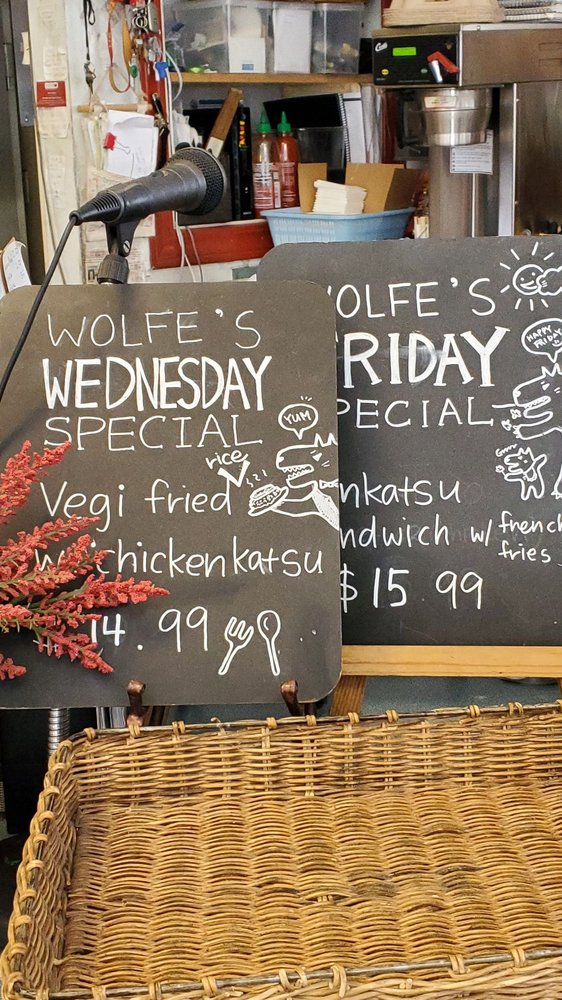 WOLFE'S
WEDNESDAY
SPECIAL
YUM
rice
Vegi fried
w/ chickenkatsu
14.99
OLFE'S
RIDAY
PECIAL
HAPPY
FRIDAY
nkatsu
ndwich w/ french
fries
$15 99